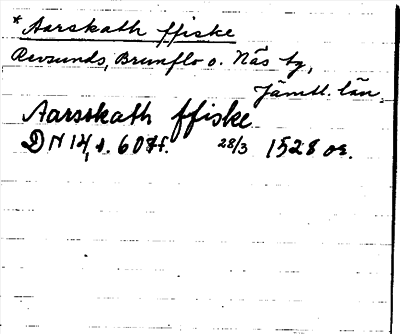 * Aarskath ffiske
Revsunds, Brunflo o. Näs tg,
Jämtl. län.
Aarsskath ffiske
DN 14, s. 60 ff. 28/3 1528 or.